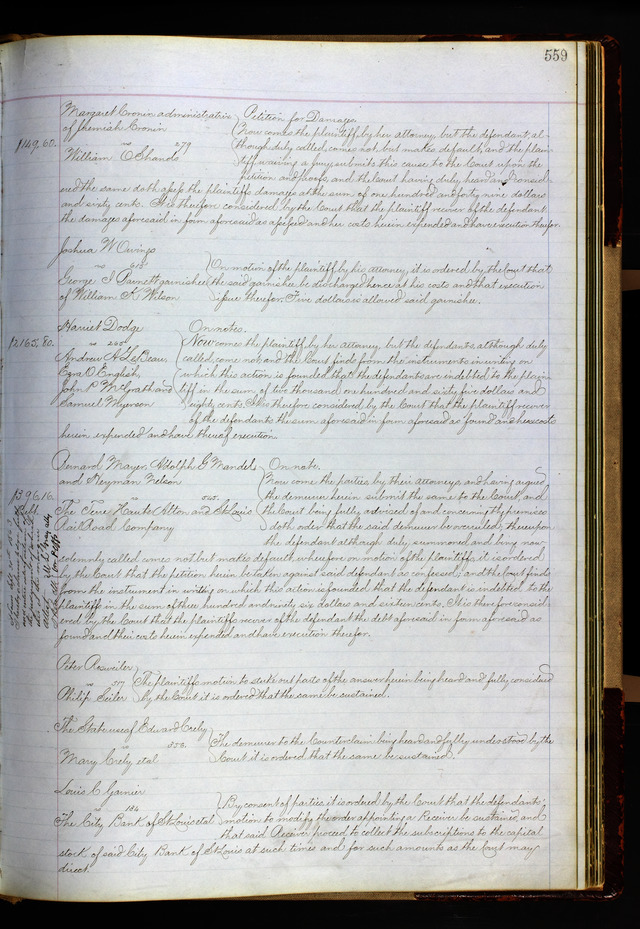 559
Margaret Cronin administratrix Petition for Damages
of Jeremiah Cronin Now comes the plaintiff by her attorney, but the defendant, al-
$149.60. vs 279 though duly called, comes not but makes default, and the plain-
William O'Shands tiff waiving a jury, submits this cause to the Court upon the
petition and proofs, and the Court having duly heard and consid-
ered the same doth assess the plaintiffs damages at the sum of one hundred and forty nine dollars
and sixty cents. It is therefore considered by the Court that the plaintiff recover of the defendant
the damages aforesaid in form aforesaid as assessed and her costs herein expended and have execution therefor.
Joshua W Owings
vs 615 On motion of the plaintiff by his attorney, it is ordered by the Court that
George I Barnett garnishee the said garnishee be discharged hence at his costs and that execution
of William K Wilson issue therefor. Five dollars is allowed said garnishee.
Harriet Dodge On notes.
$2165.80. vs Now comes the plaintiff by her attorney but the defendants, although duly
Andrew H LeBeau, called, come not, and the Court finds from the instruments in writing on
Ezra O English, which this action is founded that the defendants are indebted to the plain-
John P McGrath and tiff in the sum of two thousand one hundred and sixty five dollars and
Samuel Wyerson eighty cents. It is therefore considered by the Court that the plaintiff recover
of the defendants the sum aforesaid in form aforesaid as found and her costs
herein expended and have thereof execution.
Bernard Mayer, Adolph G Mandels On note.
and Neyman Nelson Now come the parties by their attorneys and having argued
$396.16. vs the demurrer herein submit the same to the Court, and
Debt. The Terre Haute Alton and St Louis the Court being fully advised of and concerning the premises
Rail Road Company doth order that the said demurrer be overruled; thereupon
the defendant although duly summoned and being now
solemnly called comes not but makes default, wherefore on motion of the plaintiffs it is ordered
by the Court that the petition herein be taken against said defendant as confessed; and the Court finds
from the instrument in writing on which this action is founded, that the defendant is indebted to the
plaintiffs in the sum of three hundred and ninety six dollars and sixteen cents. It is therefore consid-
ered by the Court that the plaintiffs recover of the defendant the debt aforesaid in form aforesaid as
found and their costs herein expended and have execution therefor.
Peter Resweiler
vs 317 The plaintiffs motion to strike out parts of the answer herein being heard and fully considered
Philip Seiler by the Court it is ordered that the same be sustained.
The State use of Edward Crely
vs 358. The demurrer to the Counterclaim being heard and fully understood by the
Mary Crely et al Court it is ordered that the same be sustained.
Louis C Garnier
vs 184 By consent of parties, it is ordered by the Court that the defendants'
The City Bank of St Louis et al motion to modify the order appointing a Receiver be sustained, and
that said Receiver proceed to collect the subscriptions to the capital
stock of said City Bank of St Louis at such times and for such amounts as the Court may
direct.